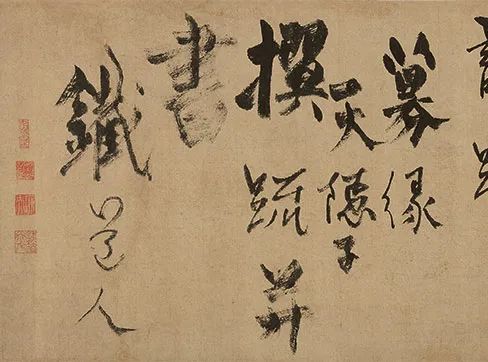 募緣
隱子
撰疏并
書
鐵心道人